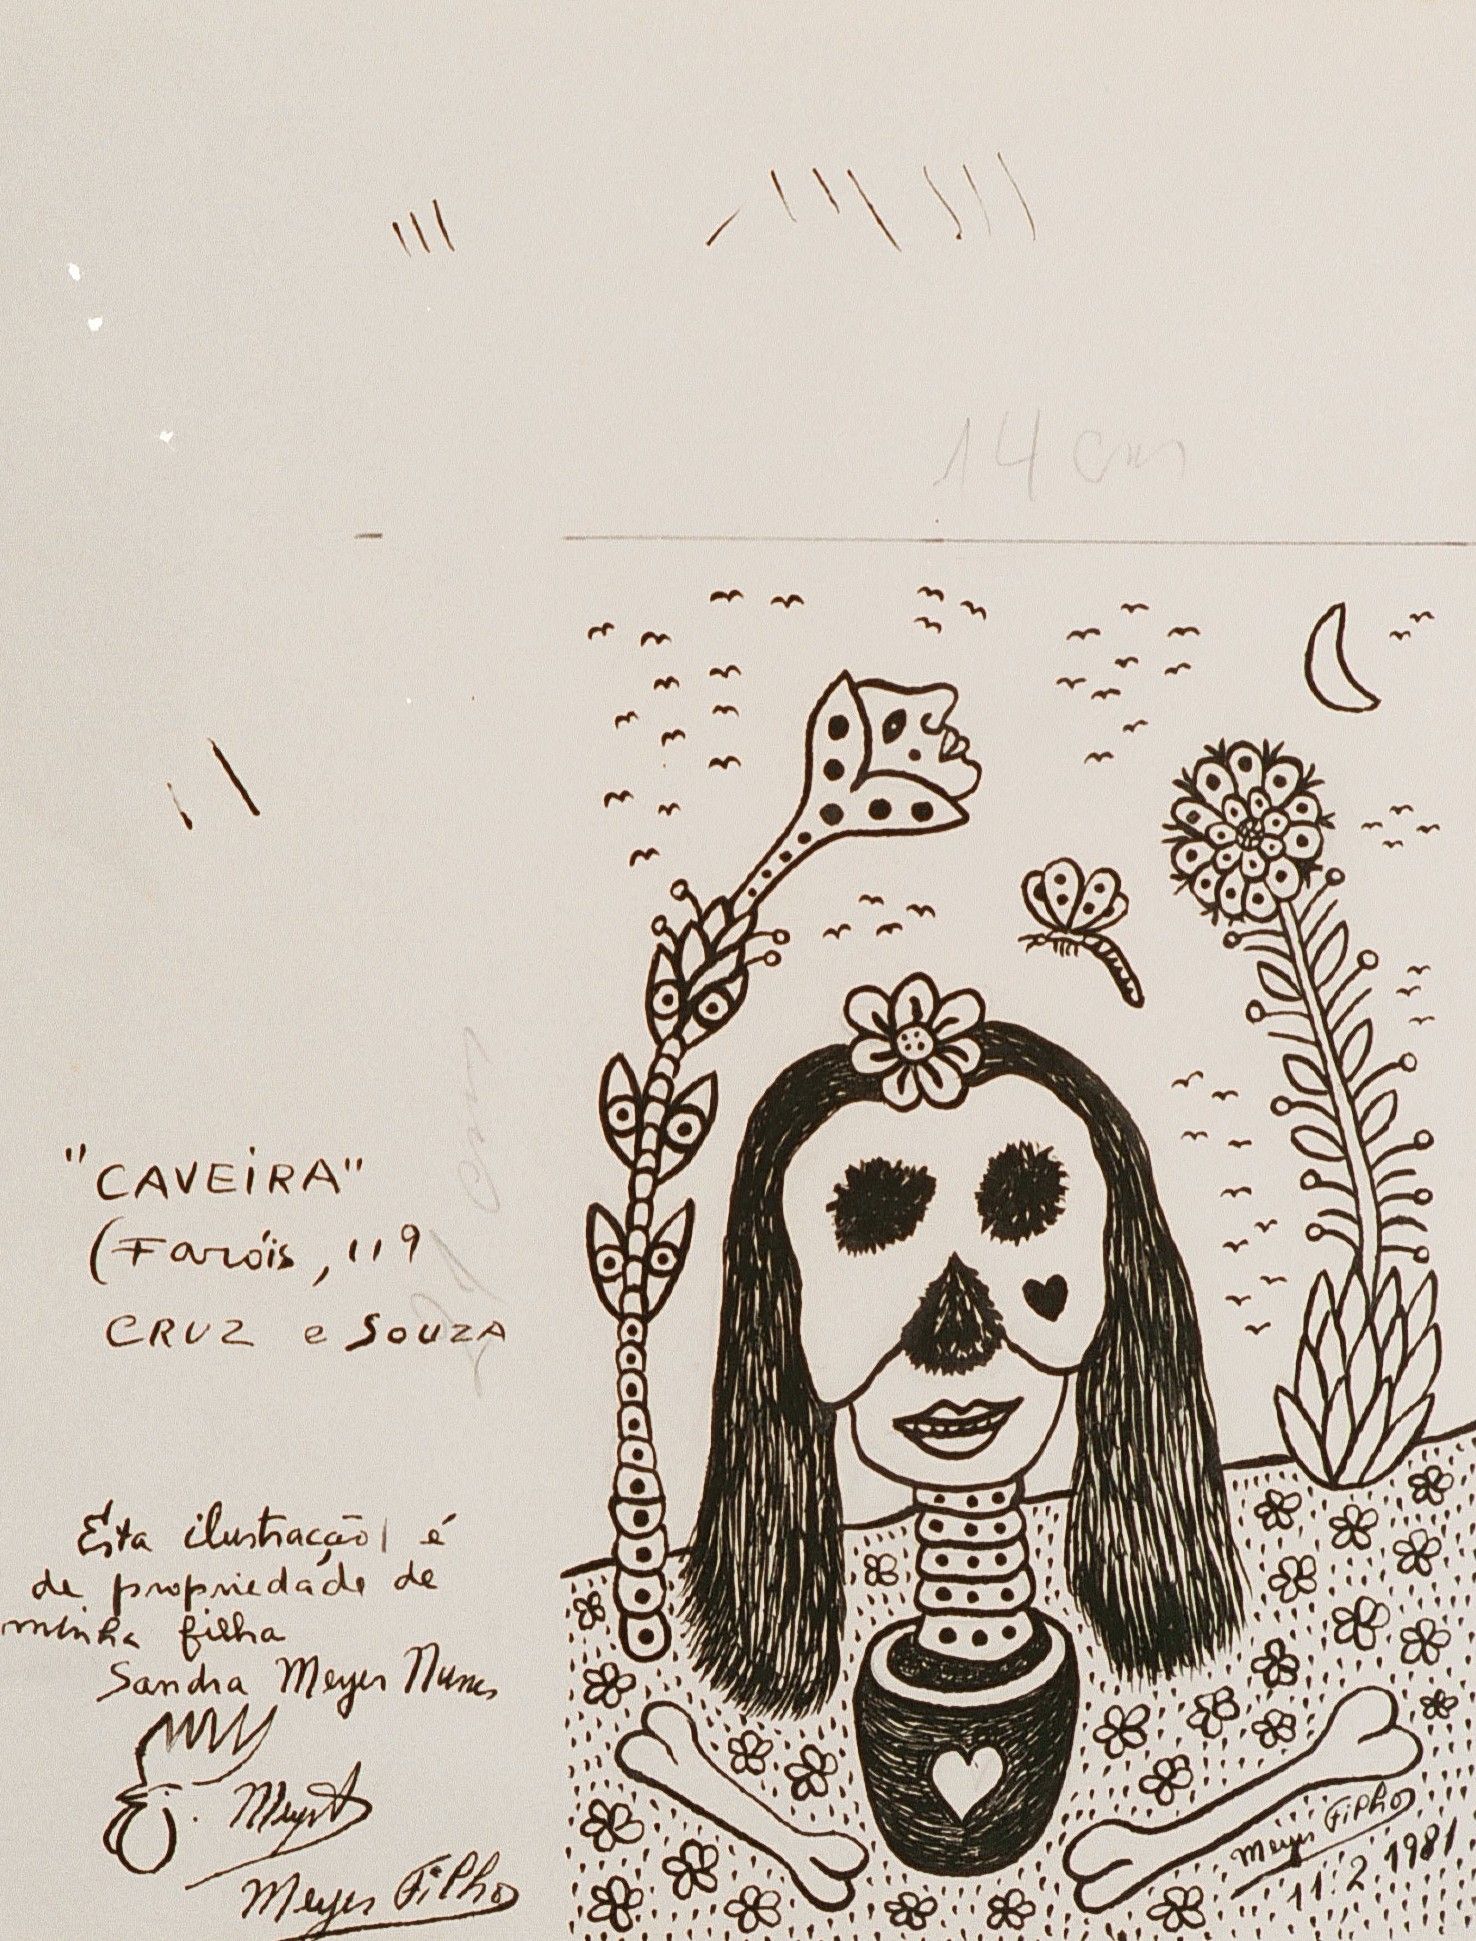 14 cm
21 cm
"CAVEIRA"
(Faróis, 119
CRUZ e SOUZA
Esta ilustração é
de propriedade de
minha filha
Sandra Meyer Nunes
Meyer Filho
Meyer Filho
11.2.1981